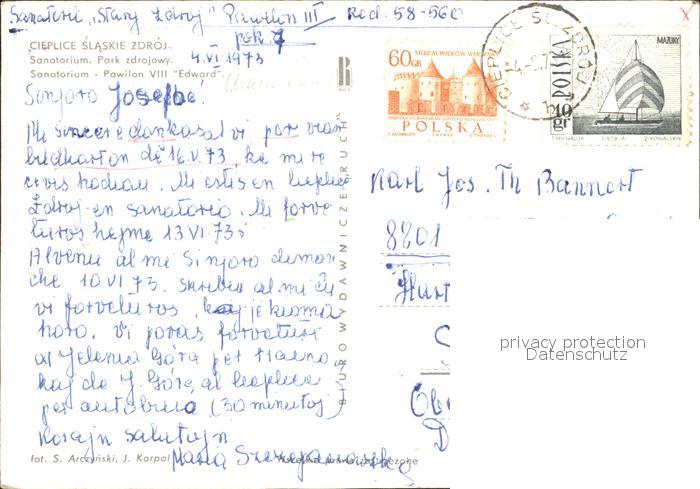 Sanatorii „Stary Zdrój" Pawilon III Red. 58-560
pok 7
CIEPLICE ŚLĄSKIE ZDRÓJ. 4.VI 1973
Sanatorium. Park zdrojowy.
Sanatorium - Pawilon VIII "Edward".
Sinjoro Josefo!
Mi sincere dankas al vi por vian
bildkarton de 16.V.73, ke mi re
cevis hodiau. Mi estis en Cieplice
Zdroj en sanatorio. Mi forve
turos hejme 13 VI 73
Alvenu al mi Sinjoro dimon
che 10 VI 73. Skribu al mi ĉu
vi forveturos, kaj je kioma
horo. Vi povas forveturi
al Jelenia Góra per trajno
kaj de J. Góra al Cieplice
per autobuso (30 minutoj)
Korajn salutojn
Maria
fot. S. Arczyński, J. Korpal
BIURO WYDAWNICZE „RUCH"
RUCH
60 GR
SIEDEM WIEKÓW WARSZAWY
POLSKA
CIEPLICE ŚL. ZDRÓJ
MAZURY
POLSKA
40 gr
Karl Jos. Th Bannert
8201
Har
S
Obe
D
privacy protection
Datenschutz
x